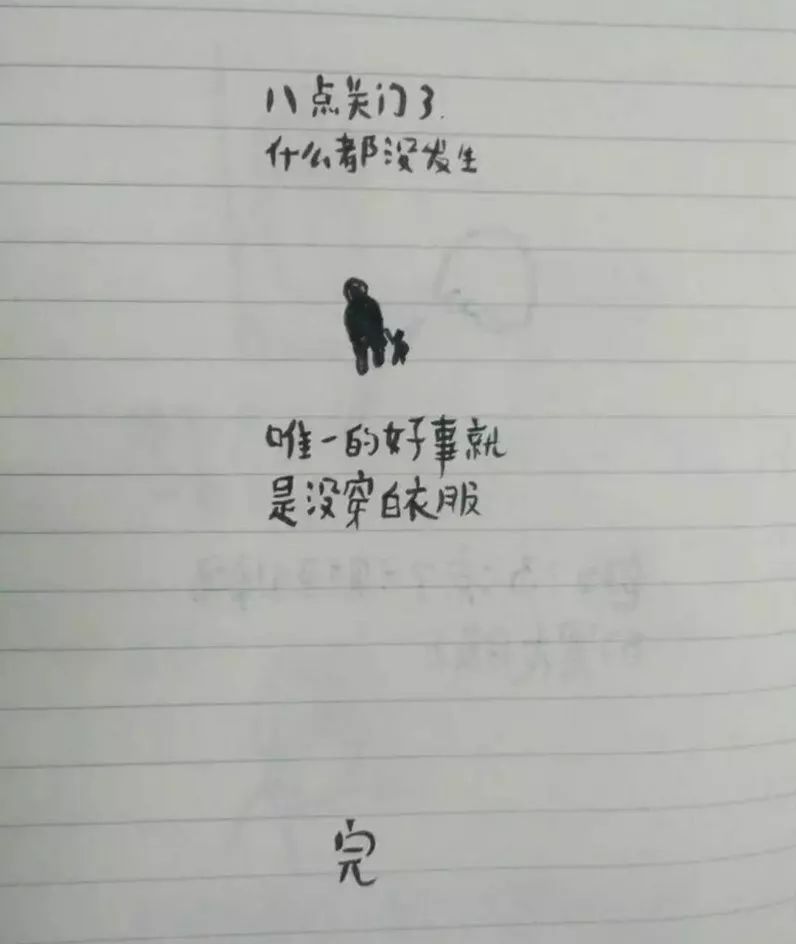 八点关门了.
什么都没发生
唯一的好事就
是没穿白衣服
完